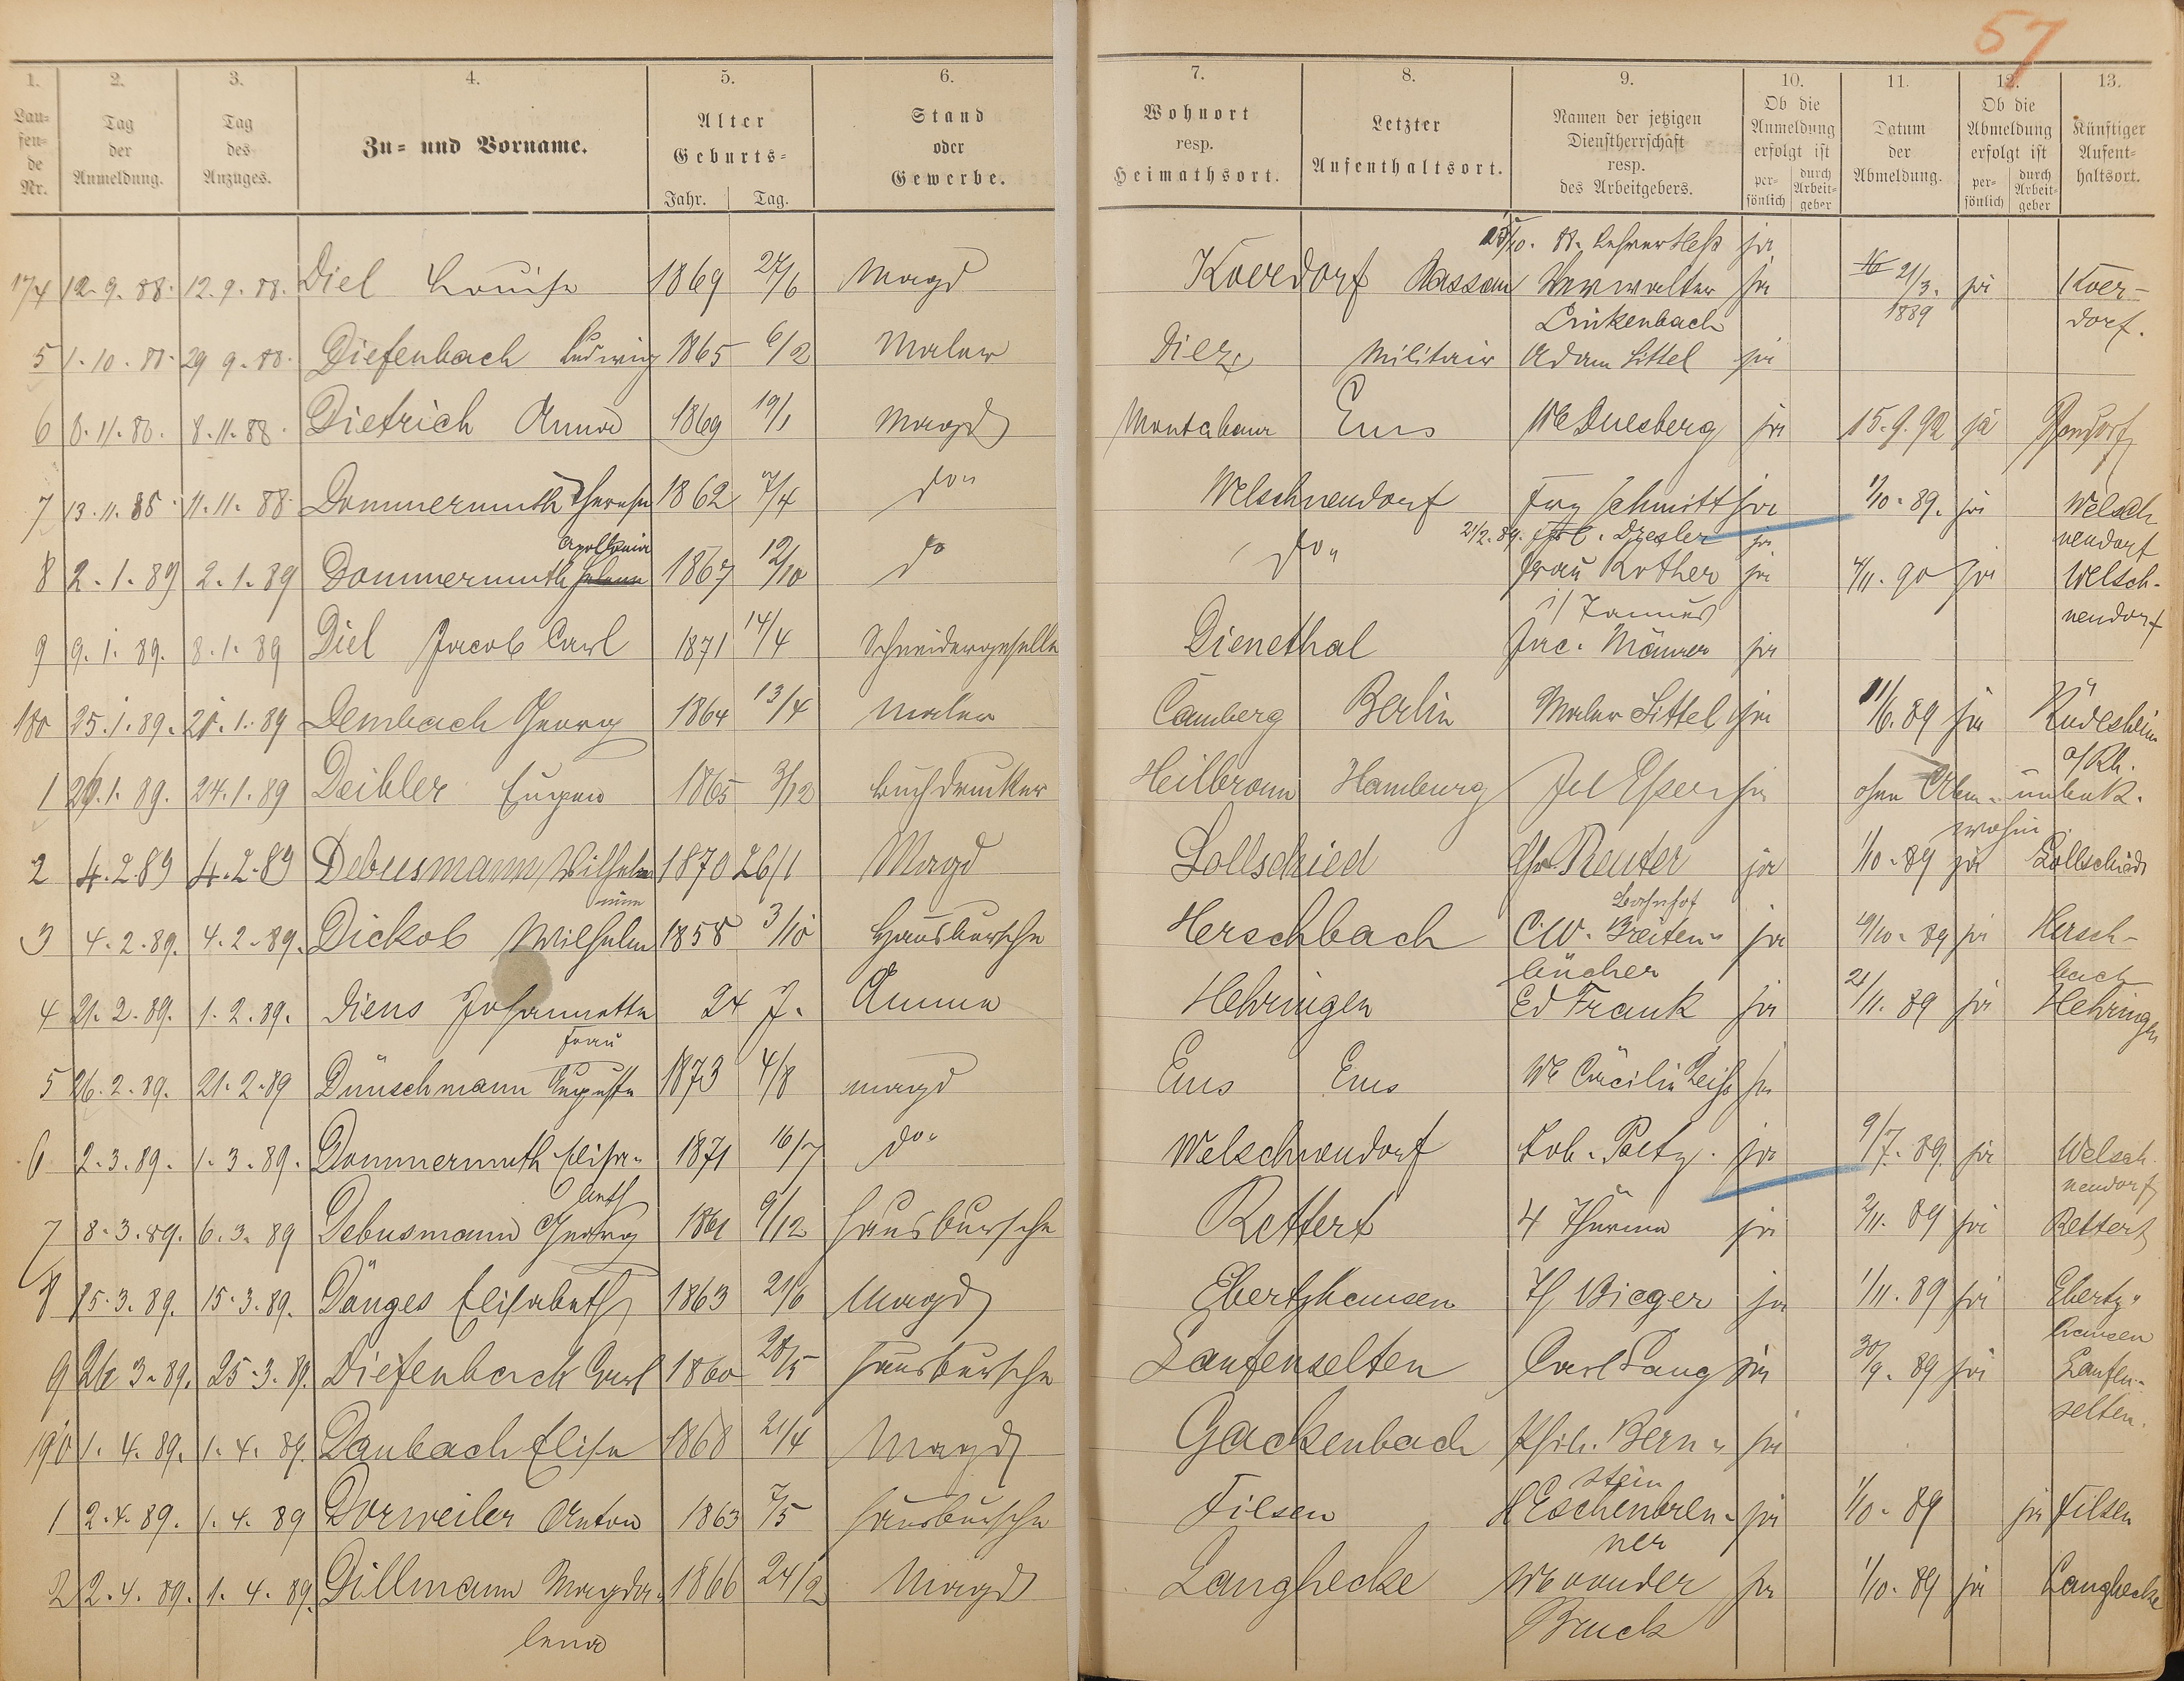 57
1. 2. 3. 4. 5. 6. 7. 8. 9. 10. 11. 12. 13.
Lau=
fen=
de
Nr.
Tag
der
Anmeldung.
Tag
des
Anzuges.
Zu= und Vorname.
Alter
Geburts=
Jahr. Tag.
Stand
oder
Gewerbe.
Wohnort
resp.
Heimathsort.
Letzter
Aufenthaltsort.
Namen der jetzigen
Dienstherrschaft
resp.
des Arbeitgebers.
Ob die
Anmeldung
erfolgt ist
per=
sönlich
durch
Arbeit=
geber
Datum
der
Abmeldung.
Ob die
Abmeldung
erfolgt ist
per=
sönlich
durch
Arbeit=
geber
Künftiger
Aufent=
haltsort.
88. Lehrer Heß ja
174 12.9.88. 12.9.88. Diel Louise 1869 27/6 Magd Koerdorf Nassau Verwalter ja 21/3. ja Koer-
Linkenbach 1889 dorf.
5 1.10.88. 29 9.88. Diefenbach Ludwig 1865 6/2 Maler Diez Militair Adam Sittel ja
6 8.11.88. 8.11.88. Dietrich Anna 1869 19/1 Magd Montabaur Ems We Duesberg ja 15.9.92 ja
7 13.11.88. 11.11.88 Dommermuth Therese 1862 7/4 do" Welschneudorf Frz Schmitt ja 1/10.89. ja Welsch
Apollonia 21/2.89. Dresler ja neudorf
8 2.1.89 2.1.89 Dommermuth 1867 12/10 do do" Frau Rother ja 4/11.90 ja Welsch-
i/ Taunus neudorf
9 9.1.89. 8.1.89 Diel Jacob Carl 1871 14/4 Schneidergeselle Dienethal Jac. Mäurer ja
180 25.1.89. 21.1.89 Dembach Georg 1864 13/4 Maler Camberg Berlin Maler Sittel ja 11/6.89 ja Rüdesheim
a/Rh.
1 26.1.89. 24.1.89 Deibler Eugen 1865 3/12 Buchdrucker Heilbronn Hamburg ja ohne Abm. unbek.
wohin
2 4.2.89 4.2.89 Debusmann Wilhel 1870 26/1 Magd Lollschied Chr Reuter ja 1/10.89 ja Lollschied
mine Bahnhof
3 4.2.89. 4.2.89. Dickob Wilhelm 1858 3/10 Hausbursche Herschbach C.W. Breiten" ja 19/10.89 ja Hersch-
bücher bach
4 21.2.89. 1.2.89. Diens Johannette 24 J. Amme Hehringen Ed Frank ja 21/11.89 ja Hehringen
Frau
5 26.2.89. 21.2.89 Dünschmann Auguste 1873 4/8 Magd Ems Ems We Cäcilie ja
6 2.3.89. 1.3.89. Dommermuth Elisa- 1871 16/7 do" Welschneudorf Tob. Paetz. ja 9/7.89. ja Welsch
beth neudorf
7 8.3.89. 6.3.89 Debusmann Georg 1861 9/12 Hausbursche Rettert 4 Thürme ja 2/11.89 ja Rettert
8 15.3.89. 15.3.89. Dänges Elisabeth 1863 21/6 Magd Ebertshausen H Bieger ja 1/11.89 ja Ebertz"
hausen
9 26 3.89. 25.3.89. Diefenbach Carl 1860 28/5 Hausbursche Laufenselten Carl Lang ja 30/9.89 ja Laufen-
selten.
190 1.4.89. 1.4.89. Daubach Elise 1868 21/4 Magd Gackenbach Phil. Bern" ja
stein
1 2.4.89. 1.4.89 Dorweiler Anton 1863 7/5 Hausbursche Filsen H Eschenbren" ja 1/10.89 ja Filsen
ner
2 2.4.89. 1.4.89. Dillmann Magda- 1866 24/2 Magd Langhecke We vonder ja 1/10.89 ja Langhecke
lena Bruck